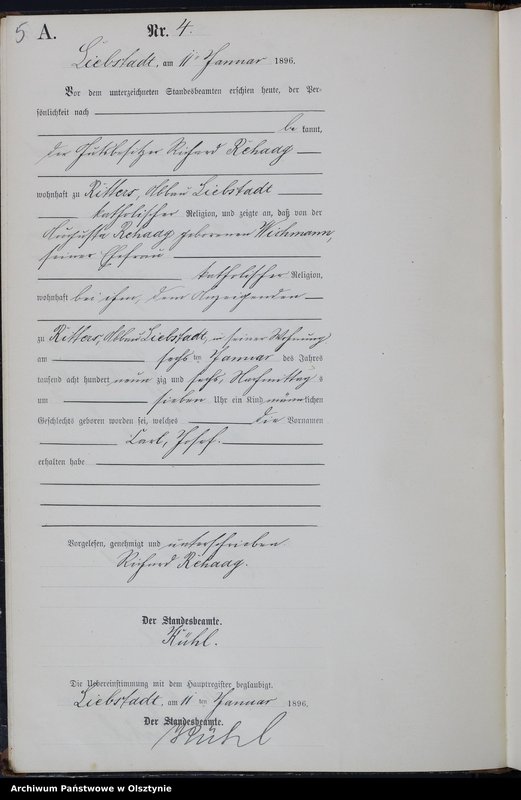 5 A. Nr. 4.
Liebstadt, am 11 Januar 1896.
Vor dem unterzeichneten Standesbeamten erschien heute, der Per-
sönlichkeit nach
be kannt,
der Gutsbesitzer Richard Rehaag
wohnhaft zu Ritters, Abbau Liebstadt
katholischer Religion, und zeigte an, daß von der
Augusta Rehaag geborenen Wichmann,
seiner Ehefrau
katholischer Religion,
wohnhaft bei ihm, dem Anzeigenden
zu Ritters, Abbau Liebstadt, in seiner Wohnung
am sechs ten Januar des Jahres
tausend acht hundert neun zig und sechs, Nachmittag s
um sieben Uhr ein Kind männlichen
Geschlechts geboren worden sei, welches die Vornamen
Carl, Josef.
erhalten habe
Vorgelesen, genehmigt und unterschrieben
Richard Rehaag.
Der Standesbeamte.
Kühl.
Die Uebereinstimmung mit dem Hauptregister beglaubigt.
Liebstadt, am 11 ten Januar 1896.
Der Standesbeamte.
Kühl
Archiwum Państwowe w Olsztynie